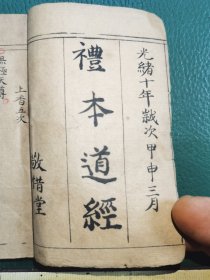 光緒十年歲次甲申三月
禮本道經
敬惜堂
上香五次
無極天尊